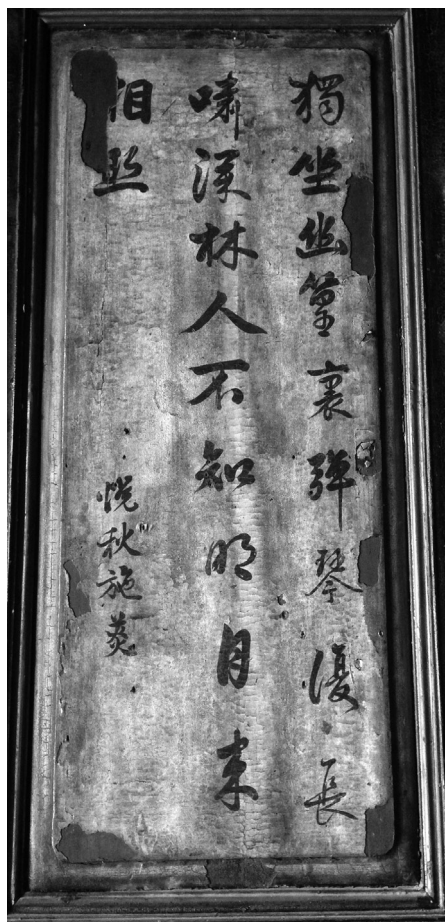 獨坐幽篁裏彈琴復長
嘯深林人不知明月來
相照
悅秋施葵